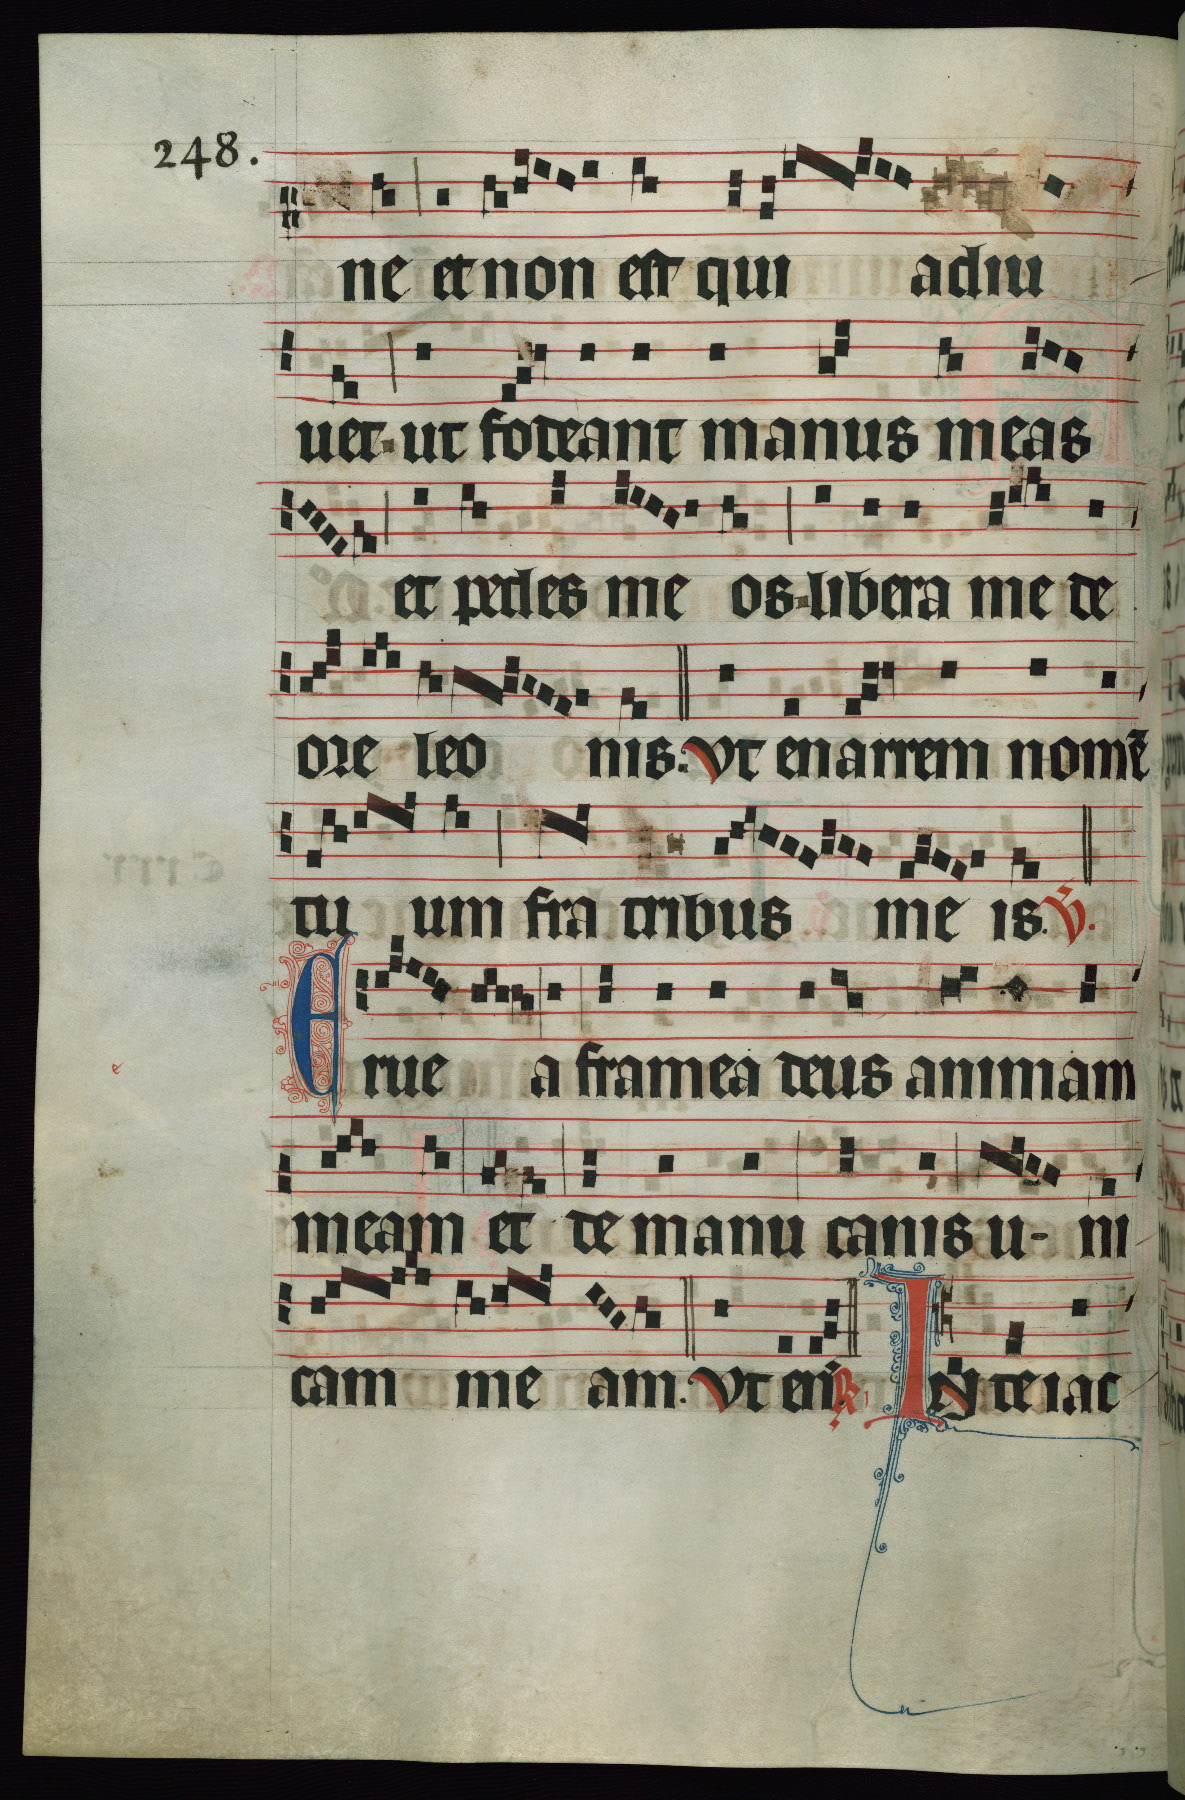 248.
ne et non est qui adiu
uet ut fodeant manus meas
et pedes me os libera me de
ore leo nis. Ut enarrem nomē
tu um fra tribus me is. V.
Erue a framea deus animam
meam et de manu canis u- ni
cam me am. Ut en̄ R. IN te iac